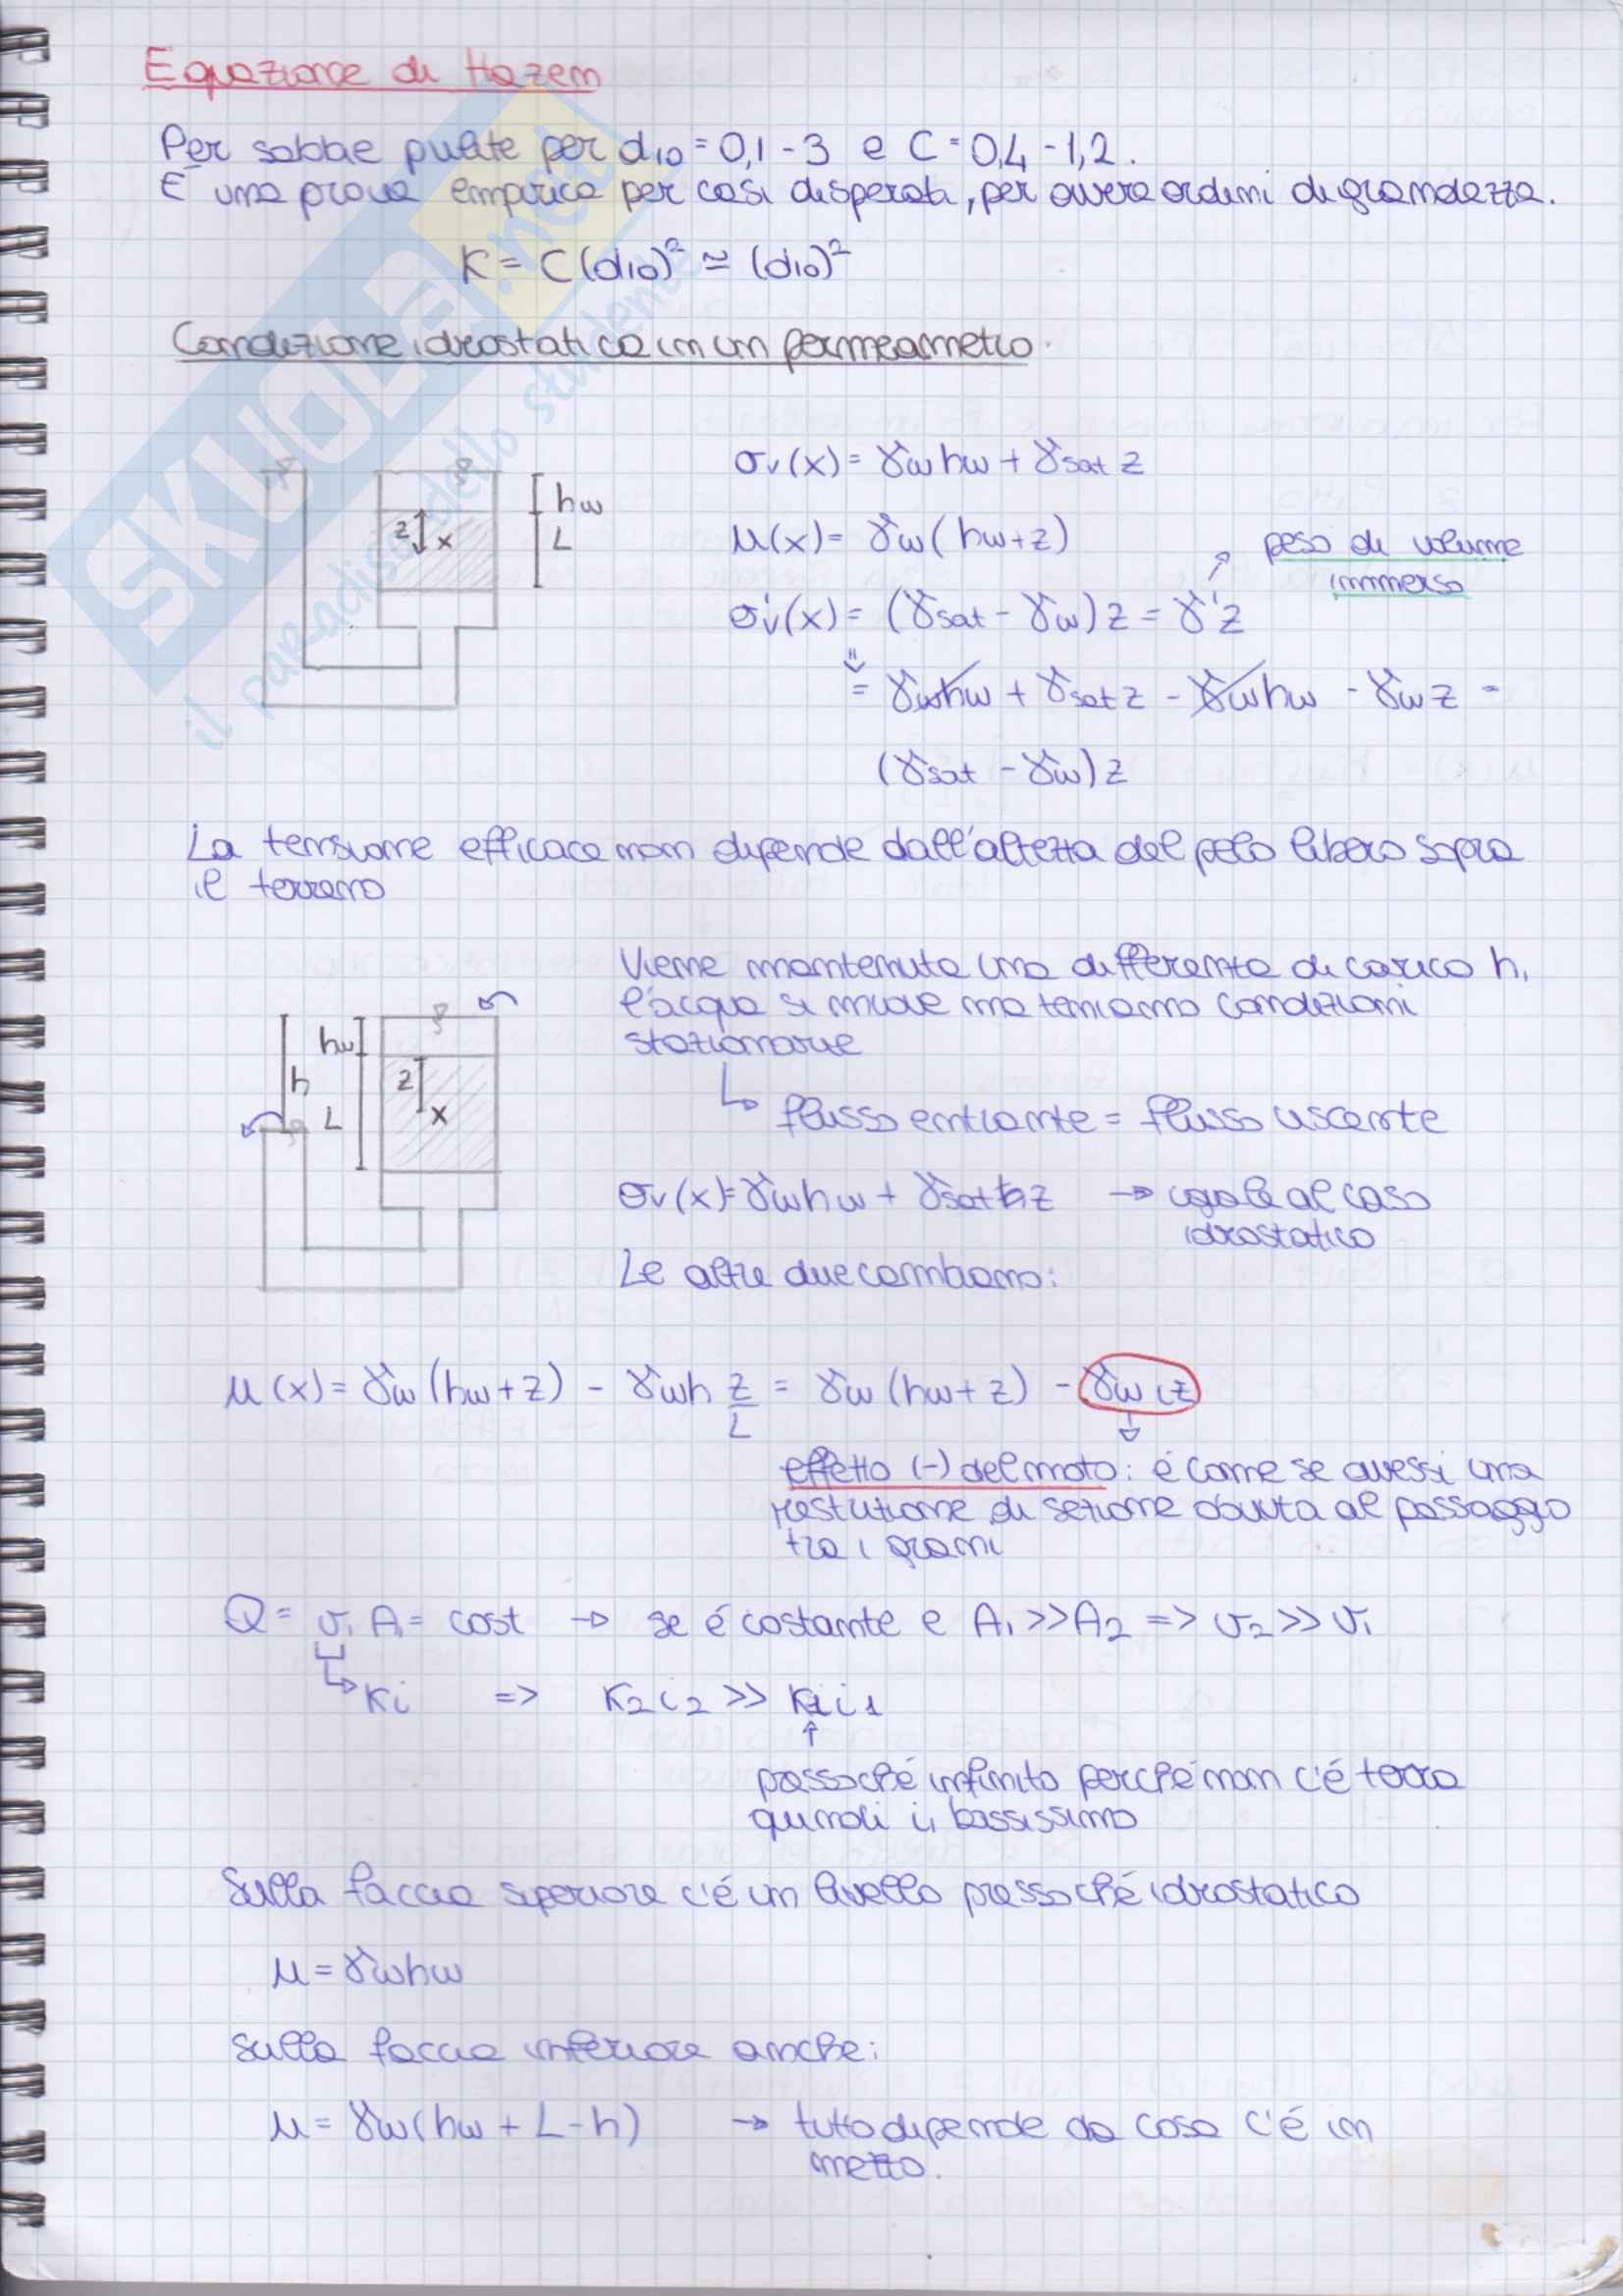 Equazione di Hazem
Per sabbie pulite per d10 = 0,1 - 3 e C = 0,4 - 1,2.
È una prova empirica per casi disperati, per avere ordini di grandezza.
K = C (d10)² ≃ (d10)²
Condizione idrostatica in un permeametro.
σv(x) = γw hw + γsat z
hw
z x
L
u(x) = γw (hw + z)
peso di volume
immerso
σ'v(x) = (γsat - γw) z = γ' z
= γw hw + γsat z - γw hw - γw z =
(γsat - γw) z
La tensione efficace non dipende dall'altezza del pelo libero sopra
il terreno
Viene mantenuta una differenza di carico h,
l'acqua si muove ma teniamo condizioni
stazionarie
hw
h
z
L
x
↳ flusso entrante = flusso uscente
σv(x) = γw hw + γsat z → uguale al caso
idrostatico
Le altre due cambiano:
u(x) = γw (hw + z) - γw h z/L = γw (hw + z) - γw i z
effetto (-) del moto: è come se avessi una
restuzione di sezione dovuta al passaggio
tra i grani
Q = v1 A1 = cost → se è costante e A1 >> A2 => v2 >> v1
↳ Ki => K2 i2 >> K1 i1
↑
pressoché infinito perché non c'è terra
quindi i1 bassissimo
Sulla faccia superiore c'è un livello pressoché idrostatico
u = γw hw
Sulla faccia inferiore anche:
u = γw (hw + L - h) → tutto dipende da cosa c'è in
mezzo.
SKUOLA.net
il paradiso dello studente